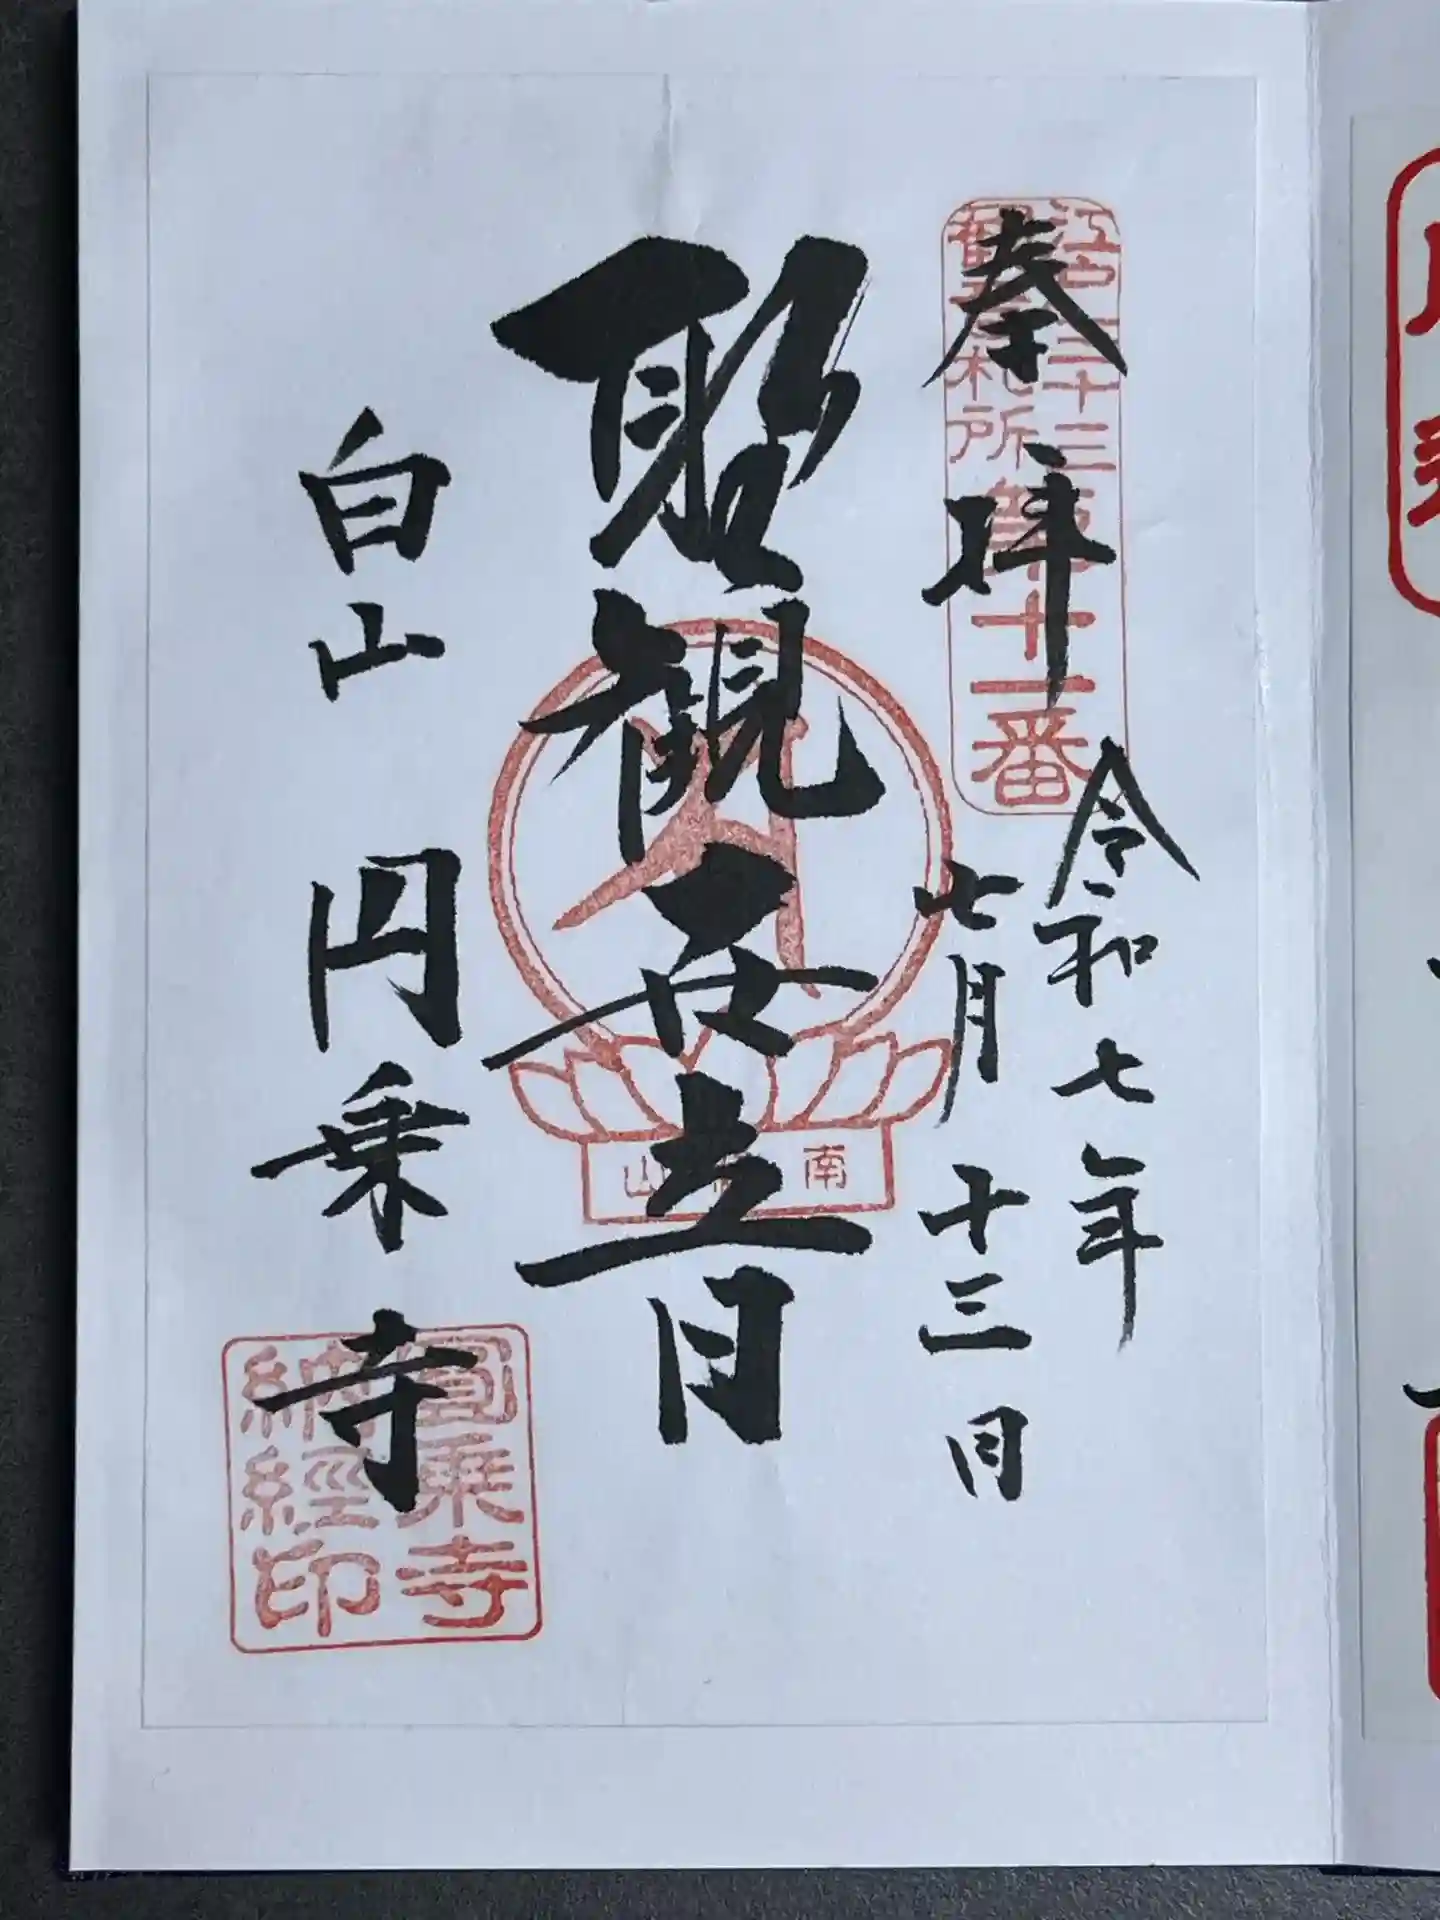 奉拝
江戸三十三
観音札所
第十一番
令和七年
七月十三日
聖観世音
南 山
白山 円乗寺
圓乗寺
納經印